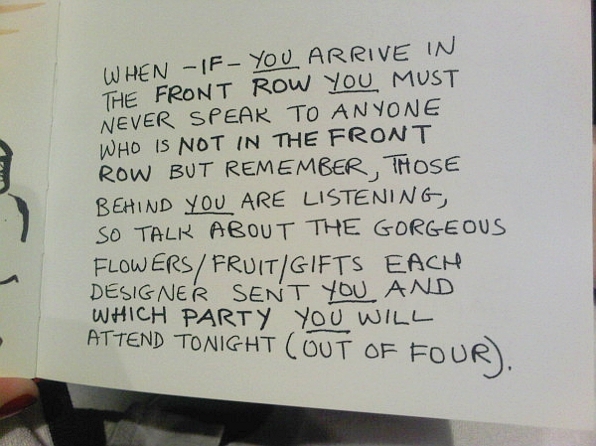 WHEN -IF- YOU ARRIVE IN
THE FRONT ROW YOU MUST
NEVER SPEAK TO ANYONE
WHO IS NOT IN THE FRONT
ROW BUT REMEMBER, THOSE
BEHIND YOU ARE LISTENING,
SO TALK ABOUT THE GORGEOUS
FLOWERS/FRUIT/GIFTS EACH
DESIGNER SENT YOU AND
WHICH PARTY YOU WILL
ATTEND TONIGHT (OUT OF FOUR).